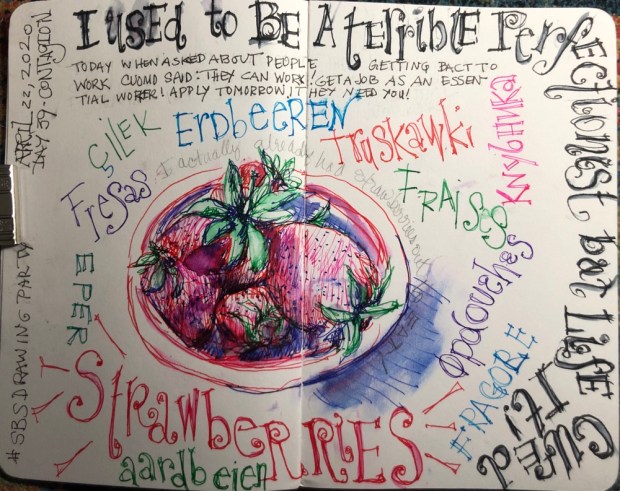 I used to BE A terrible Perfectionist but LIFE cured It!
APRIL 22, 2020
DAY 39 - CONTAGION
TODAY WHEN ASKED ABOUT PEOPLE GETTING BACT TO
WORK CUOMO SAID: THEY CAN WORK! GET A JOB AS AN ESSEN
TIAL WORER! APPLY TOMORROW, THEY NEED YOU!
ÇiLEK
ERDbeeREN
TRUSKAWKi
КЛУБНИКА
Fresas
I actually already had strawberries out
FRAISES
EPER
φράουλες
FRAGOLE
StrawbeRRIES
aardbeien
#SBS DRAWING PARTY